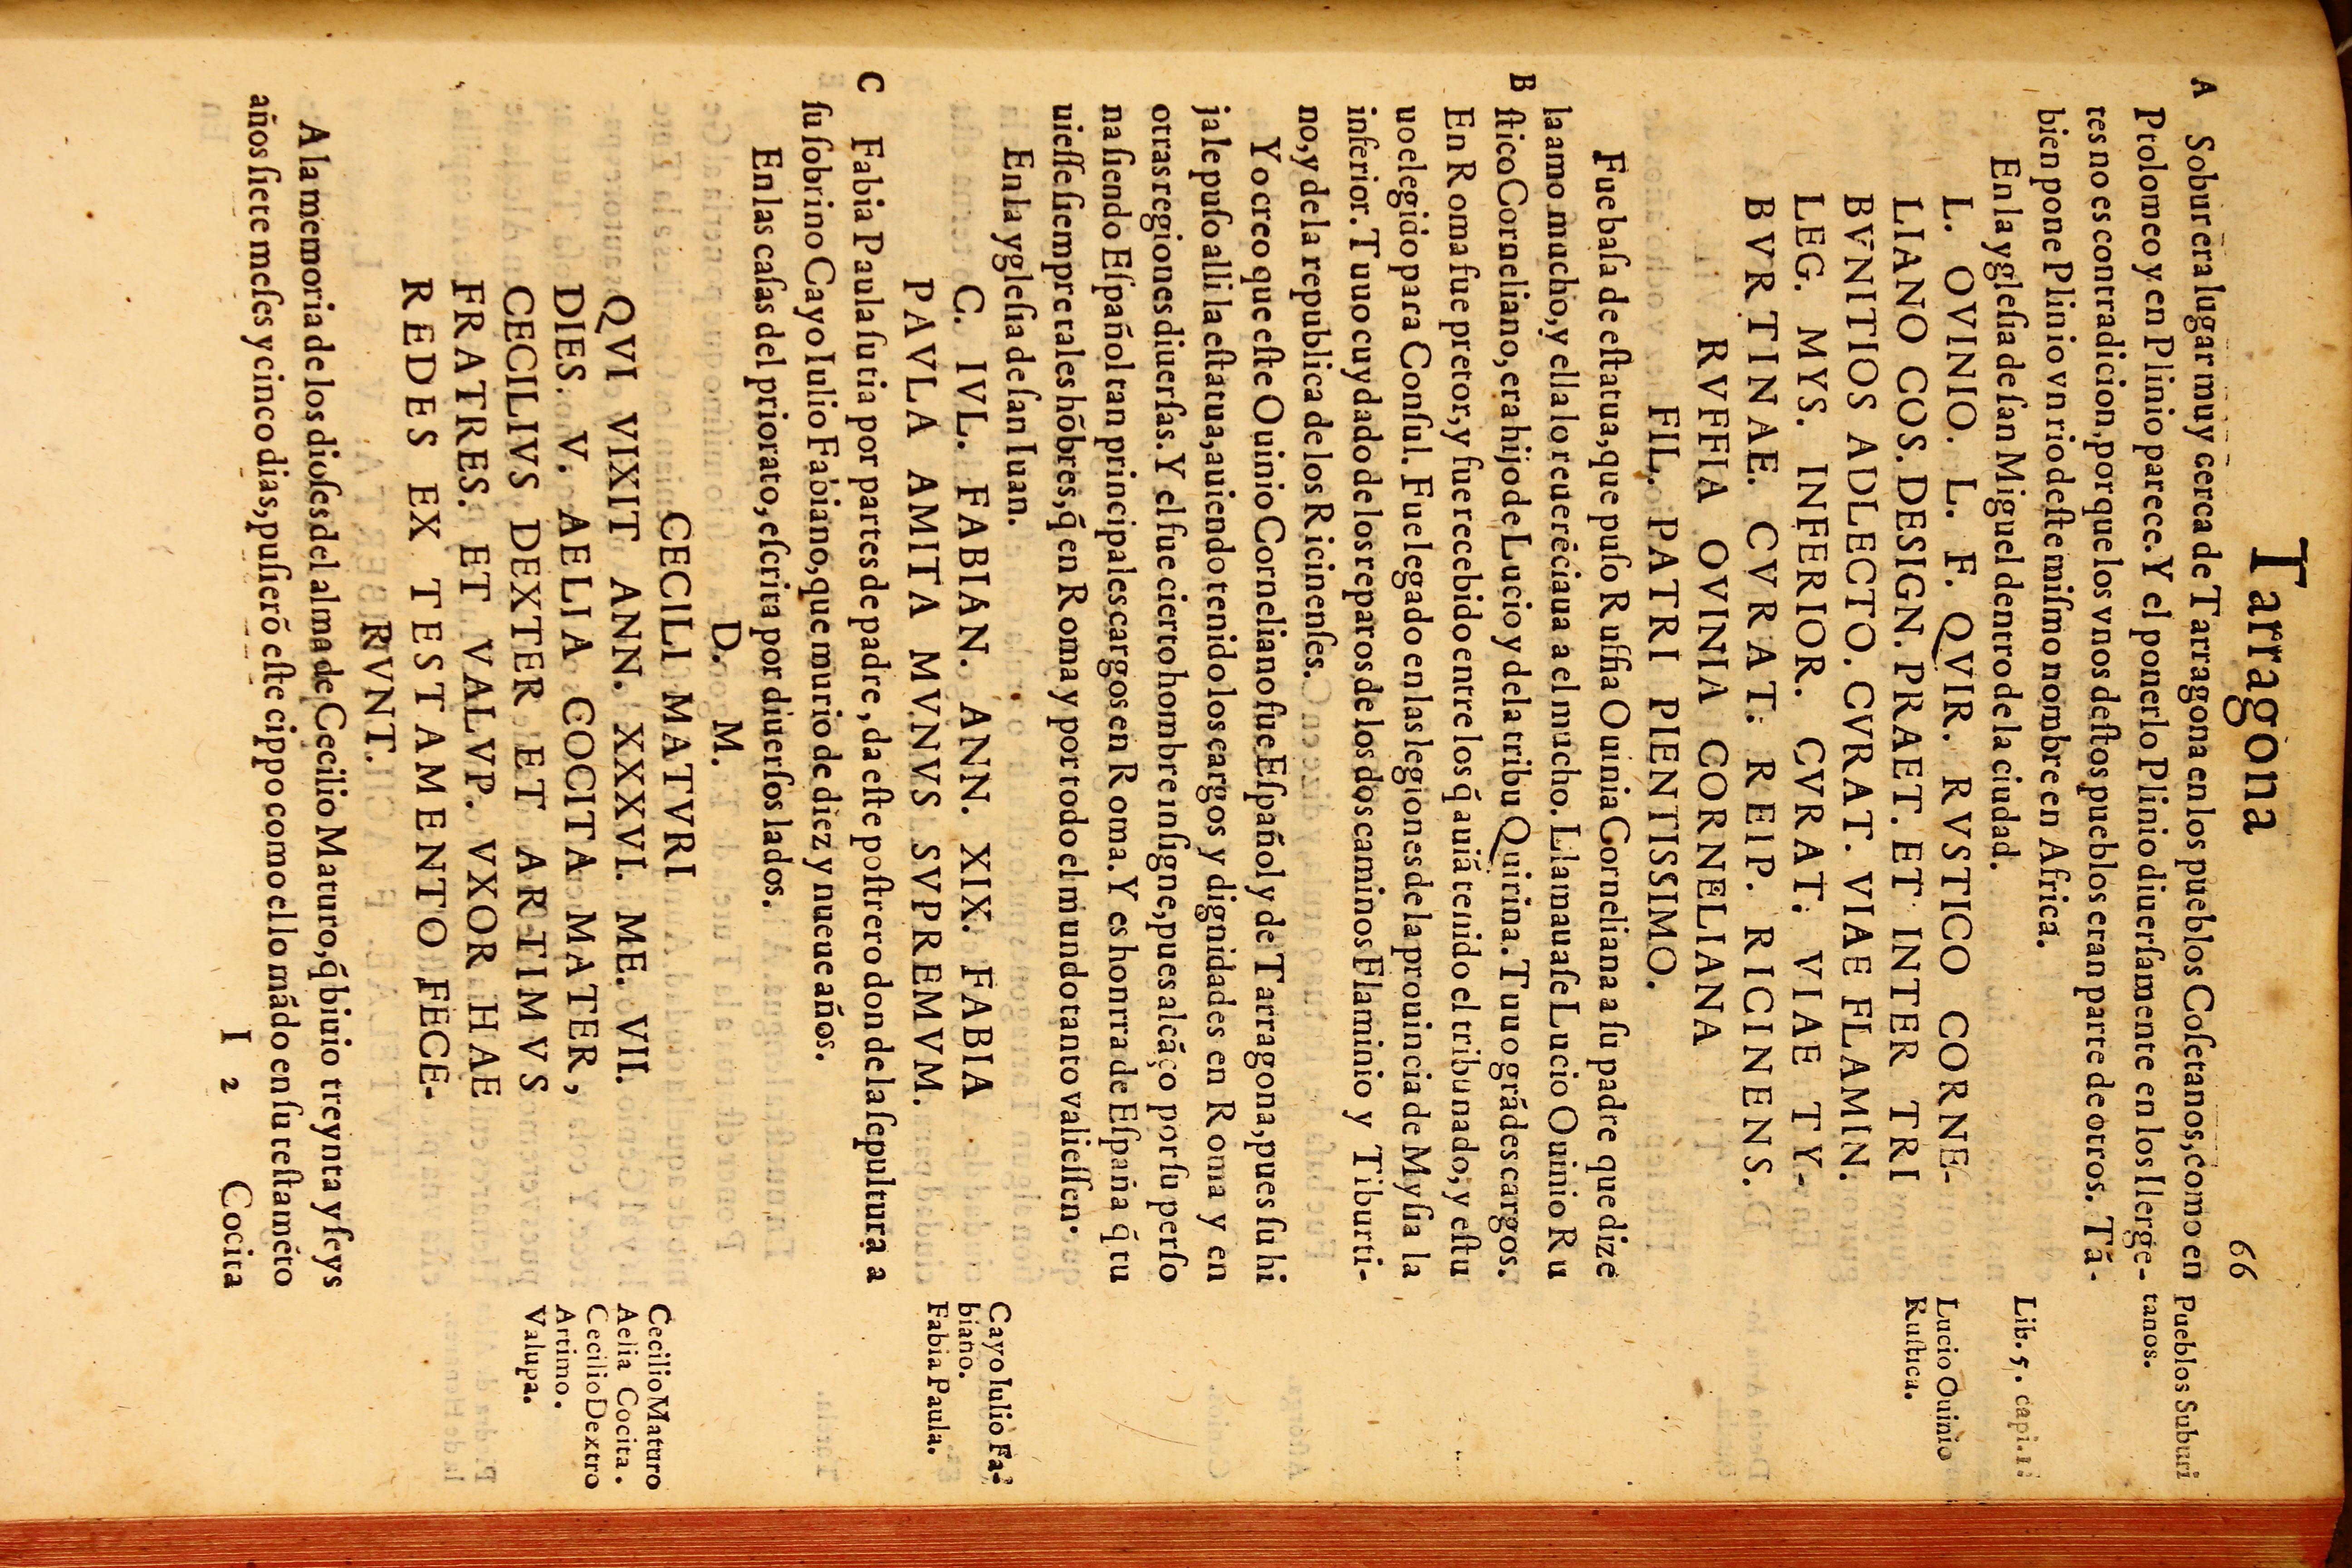 Tarragona 66
A Sobur era lugar muy cerca de Tarragona en los pueblos Cosetanos, como en
Ptolomeo y en Plinio parece. Y el ponerlo Plinio diuersamente en los Ilerge-
tes no es contradicion, porque los vnos destos pueblos eran parte de otros. Tã-
bien pone Plinio vn rio deste mismo nombre en Africa.
En la yglesia de san Miguel dentro de la ciudad.
L. OVINIO. L. F. QVIR. RVSTICO CORNE-
LIANO COS. DESIGN. PRAET. ET INTER TRI
BVNITIOS ADLECTO. CVRAT. VIAE FLAMIN.
LEG. MYS. INFERIOR. CVRAT: VIAE TY-
BVRTINAE. CVRAT: REIP. RICINENS.
RVFFIA OVINIA CORNELIANA
FIL. PATRI PIENTISSIMO.
Fue basa de estatua, que puso Ruffia Ouinia Corneliana a su padre que dize
la amo mucho, y ella lo reuerẽciaua a el mucho. Llamauase Lucio Ouinio Ru
B stico Corneliano, era hijo de Lucio y de la tribu Quirina. Tuuo grãdes cargos.
En Roma fue pretor, y fue recebido entre los q̃ auiã tenido el tribunado, y estu
uo elegido para Consul. Fue legado en las legiones de la prouincia de Mysia la
inferior. Tuuo cuydado de los reparos de los dos caminos Flaminio y Tiburti-
no, y de la republica de los Ricinenses.
Yo creo que este Ouinio Corneliano fue Español y de Tarragona, pues su hi
ja le puso alli la estatua, auiendo tenido los cargos y dignidades en Roma y en
otras regiones diuersas. Y el fue cierto hombre insigne, pues alcãço por su perso
na siendo Español tan principales cargos en Roma. Y es honrra de España q̃ tu
uiesse siempre tales hõbres, q̃ en Roma y por todo el mundo tanto valiessen.
En la yglesia de san Iuan.
C. IVL. FABIAN. ANN. XIX. FABIA
PAVLA AMITA MVNVS SVPREMVM.
C Fabia Paula su tia por partes de padre, da este postrero don de la sepultura a
su sobrino Cayo Iulio Fabiano, que murio de diez y nueue años.
En las casas del priorato, escrita por diuersos lados.
D. M.
CECILI MATVRI
QVI VIXIT ANN. XXXVI. ME. VII.
DIES. V. AELIA COCITA MATER,
CECILIVS DEXTER ET ARTIMVS
FRATRES. ET VALVP. VXOR HAE
REDES EX TESTAMENTO FECE-
RVNT.
A la memoria de los dioses del alma de Cecilio Maturo, q̃ biuio treynta y seys
años siete meses y cinco dias, pusierõ este cippo como ello mãdo en su testamẽto
I 2 Cocita
Pueblos Suburi
tanos.
Lib. 5. capi. 1.
Lucio Ouinio
Rustica.
Cayo Iulio Fa-
biano.
Fabia Paula.
Cecilio Maturo
Aelia Cocita.
Cecilio Dextro
Artimo.
Valupa.